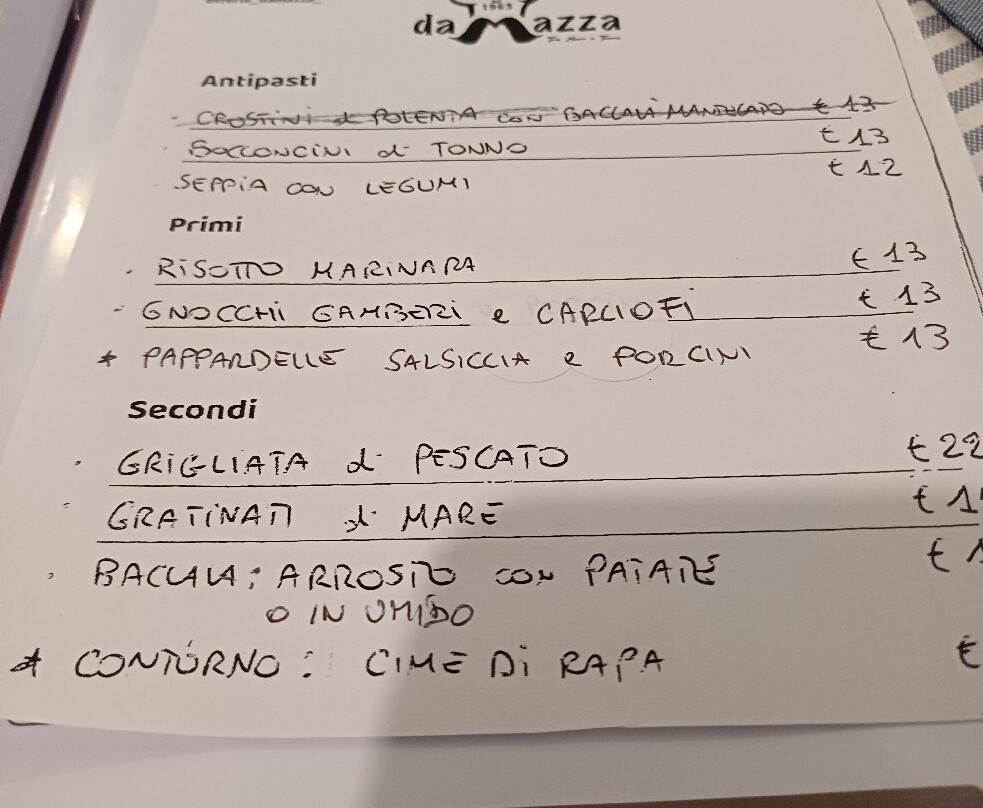 1963
da Mazza
Antipasti
- CROSTINI di POLENTA con BACCALÀ MANTECATO € 13
BOCCONCINI di TONNO € 13
SEPPIA CON LEGUMI € 12
Primi
RISOTTO MARINARA € 13
- GNOCCHI GAMBERI e CARCIOFI € 13
* PAPPARDELLE SALSICCIA e PORCINI € 13
Secondi
GRIGLIATA di PESCATO € 22
GRATINATI di MARE €
BACCALÀ: ARROSTO con PATATE €
O IN UMIDO
* CONTORNO: CIME DI RAPA €